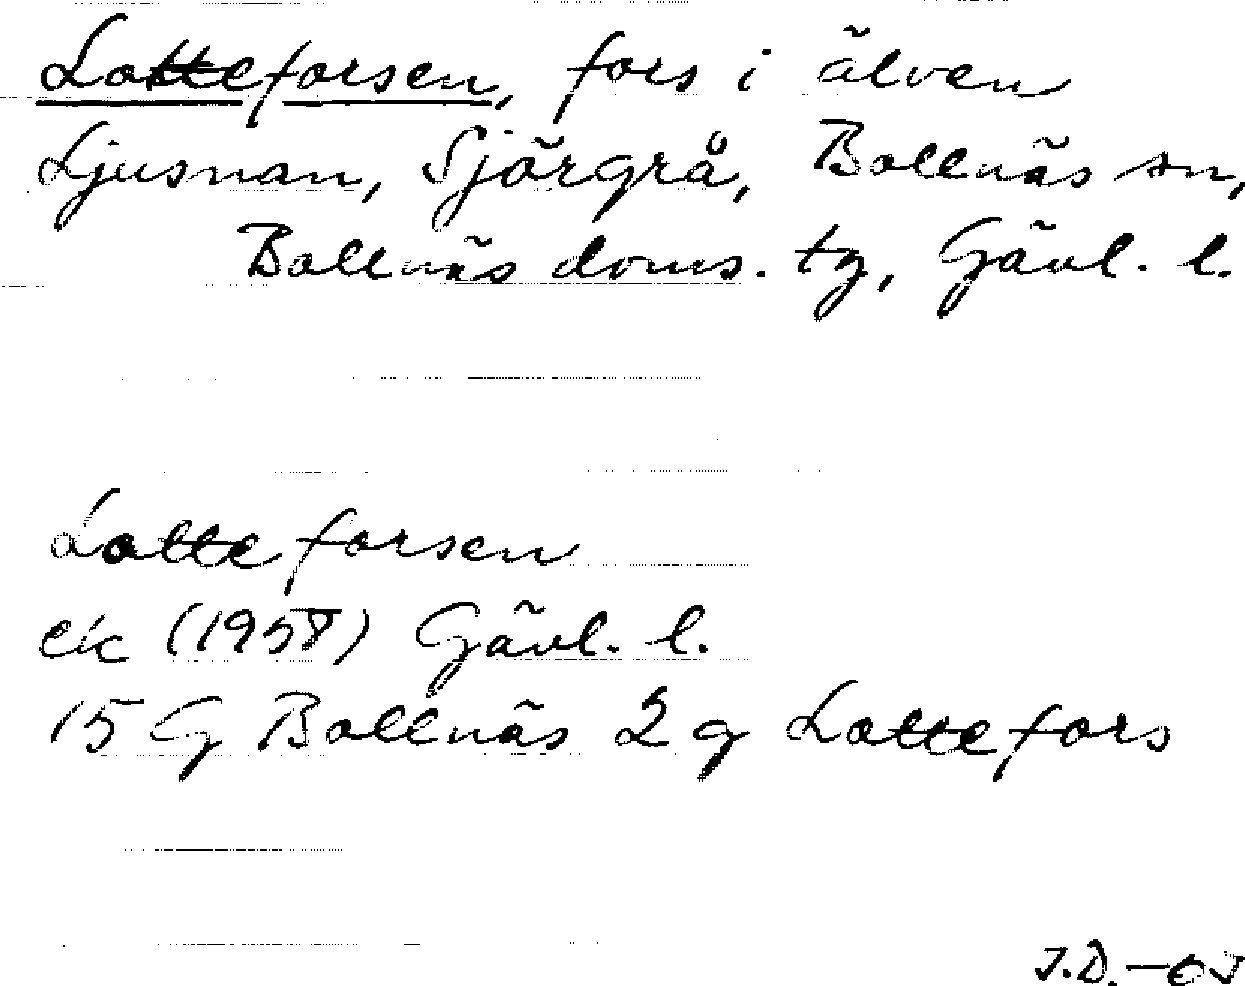 Lotteforsen, fors i älven
Ljusnan, Sjörgrå, Bollnäs sn,
Bollnäs doms. tg, Gävl. l.
Lotteforsen
ek (1958) Gävl. l.
15 G Bollnäs 2 g Lottefors